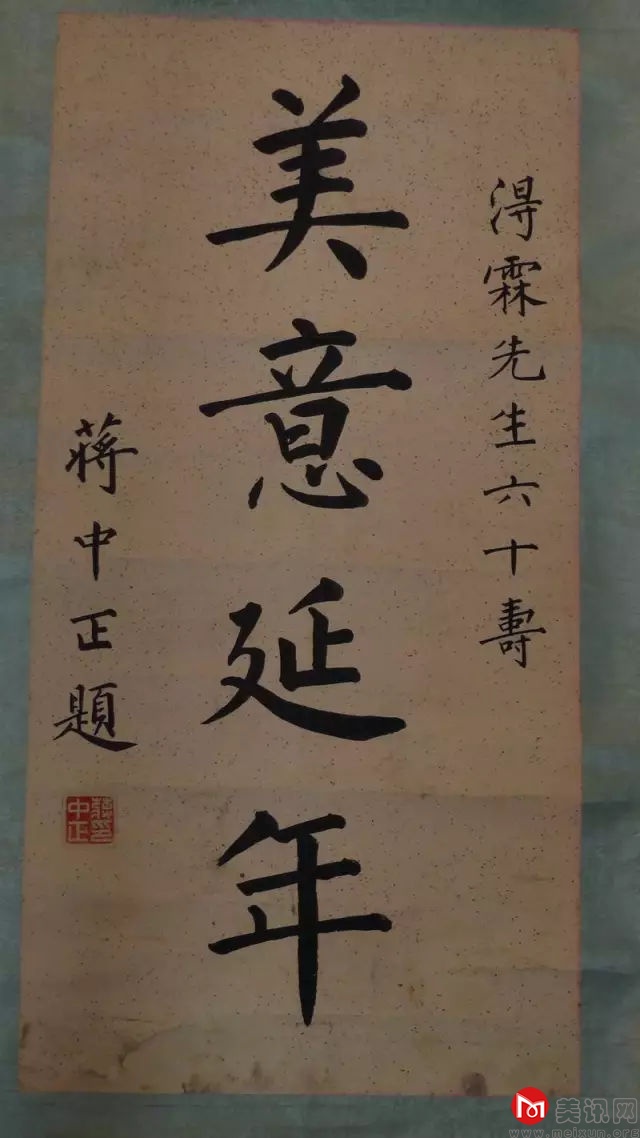 淂霖先生六十壽
美意延年
蔣中正題
蔣中正印
美讯网
www.meixun.org